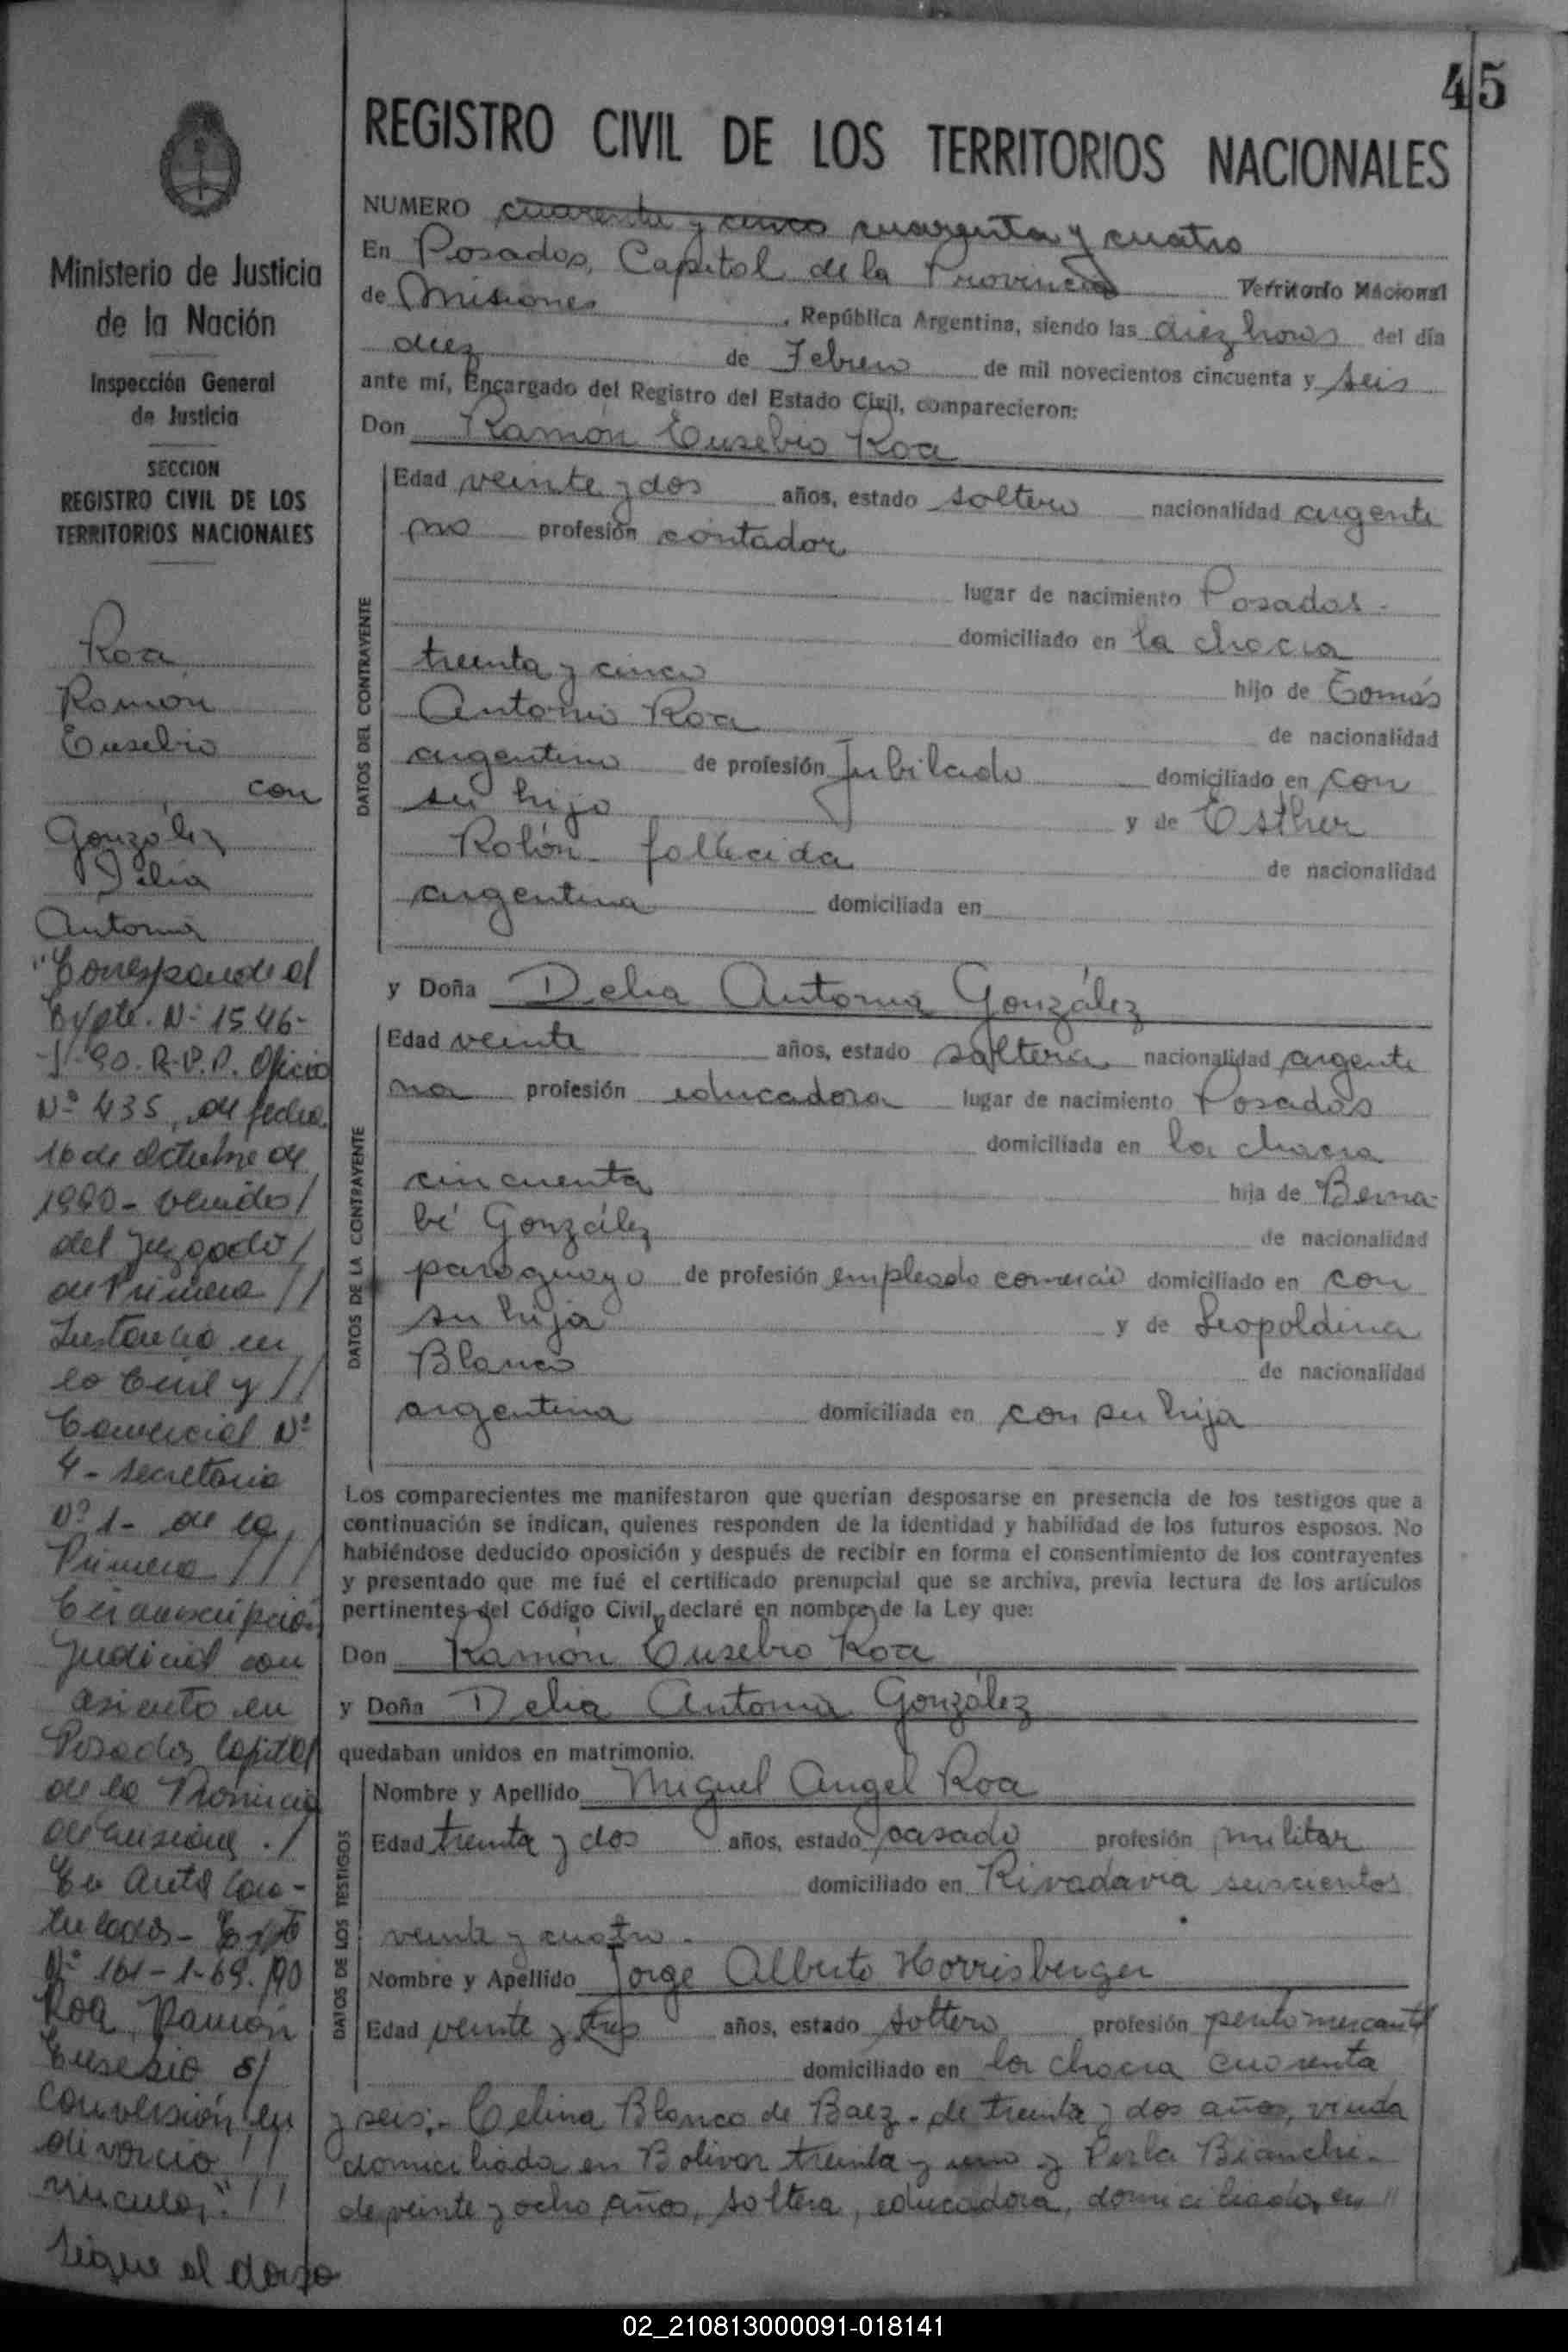 45
REGISTRO CIVIL DE LOS TERRITORIOS NACIONALES
NUMERO cuarenta y cinco cuarenta y cuatro
En Posadas, Capital de la Provincia Territorio Nacional
de Misiones, República Argentina, siendo las diez horas del día
diez de Febrero de mil novecientos cincuenta y seis
ante mí, Encargado del Registro del Estado Civil, comparecieron:
Don Ramón Eusebio Roa
DATOS DEL CONTRAYENTE
Edad veinte y dos años, estado soltero nacionalidad argenti
no profesión contador
lugar de nacimiento Posadas.
domiciliado en la chacra
treinta y cinco hijo de Tomás
Antonio Roa de nacionalidad
argentino de profesión Jubilado domiciliado en con
su hijo y de Esther
Rolón - fallecida de nacionalidad
argentina domiciliada en
y Doña Delia Antonia González
DATOS DE LA CONTRAYENTE
Edad veinte años, estado soltera nacionalidad argenti
na profesión educadora lugar de nacimiento Posadas
domiciliada en la chacra
cincuenta hija de Berna-
bé González de nacionalidad
paraguayo de profesión empleado comercio domiciliado en con
su hija y de Leopoldina
Blanco de nacionalidad
argentina domiciliada en con su hija
Los comparecientes me manifestaron que querían desposarse en presencia de los testigos que a
continuación se indican, quienes responden de la identidad y habilidad de los futuros esposos. No
habiéndose deducido oposición y después de recibir en forma el consentimiento de los contrayentes
y presentado que me fué el certificado prenupcial que se archiva, previa lectura de los artículos
pertinentes del Código Civil, declaré en nombre de la Ley que:
Don Ramón Eusebio Roa
y Doña Delia Antonia González
quedaban unidos en matrimonio.
DATOS DE LOS TESTIGOS
Nombre y Apellido Miguel Angel Roa
Edad treinta y dos años, estado casado profesión militar
domiciliado en Rivadavia seiscientos
veinte y cuatro.
Nombre y Apellido Jorge Alberto Horrisberger
Edad veinte y tres años, estado soltero profesión perito mercantil
domiciliado en la chacra cuarenta
y seis;- Celina Blanco de Baez - de treinta y dos años, viuda
domiciliada en Bolivar treinta y uno y Perla Bianchi -
de veinte y ocho años, soltera, educadora, domiciliada en //
Ministerio de Justicia
de la Nación
Inspección General
de Justicia
SECCION
REGISTRO CIVIL DE LOS
TERRITORIOS NACIONALES
Roa
Ramón
Eusebio
con
González
Delia
Antonia
"Corresponde al
Expte. Nº 1546-
J-90. R.P.P. Oficio
Nº 435, de fecha
16 de Octubre de
1990 - venido/
del Juzgado/
de Primera //
Instancia en
lo Civil y //
Comercial Nº
4 - Secretaria
Nº 1 - de la
Primera ///
Circunscripción
Judicial con
asiento en
Posadas Capital
de la Provincia
de Misiones ./
En autos cara-
tulados - Expte
Nº 161-1-69./90
Roa, Ramón
Eusebio s/
conversión en
divorcio //
vincular". //
Sigue al dorso
02_210813000091-018141